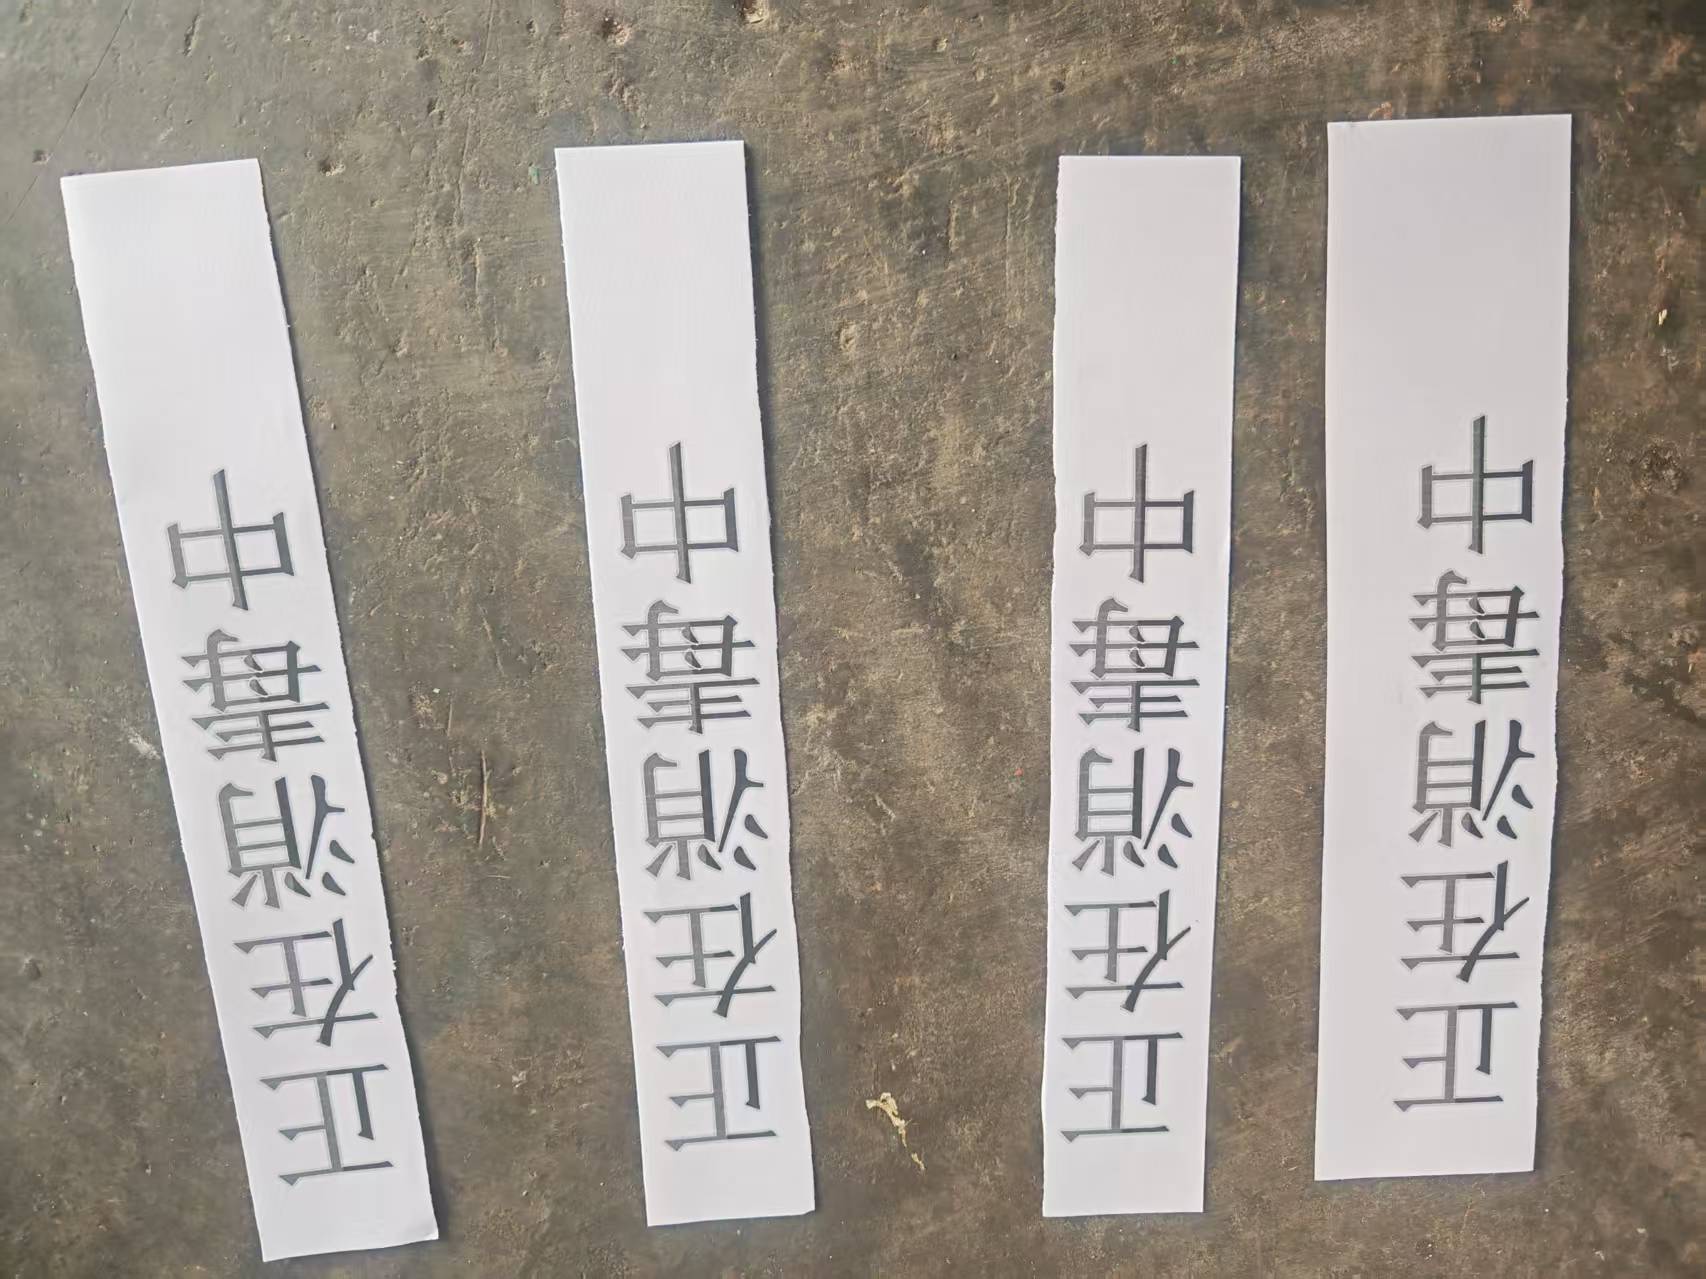 正在消毒中
正在消毒中
正在消毒中
正在消毒中